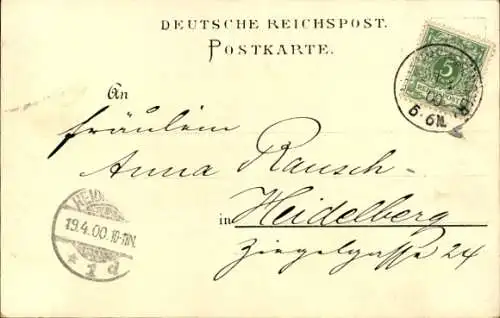 DEUTSCHE REICHSPOST.
POSTKARTE.
5
5-6N.
An
Fräulein
Anna Rausch-
in Heidelberg
Ziegelgasse 24
HEID
19.4.00.10-11N.
* 1 d